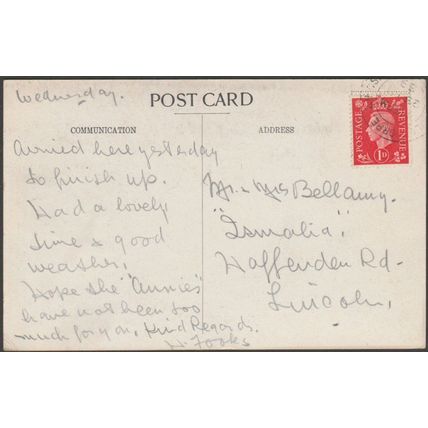 Wednesday.
POST CARD
COMMUNICATION
ADDRESS
POSTAGE
REVENUE
1D
Arrived here yesterday
to finish up.
Had a lovely
time & good
weather,
Hope the "Annies"
have not been too
much for you, Kind Regards.
H. Fooks
Mr. & Mrs Bellamy.
"Ismalia",
Haffenden Rd-
Lincoln,